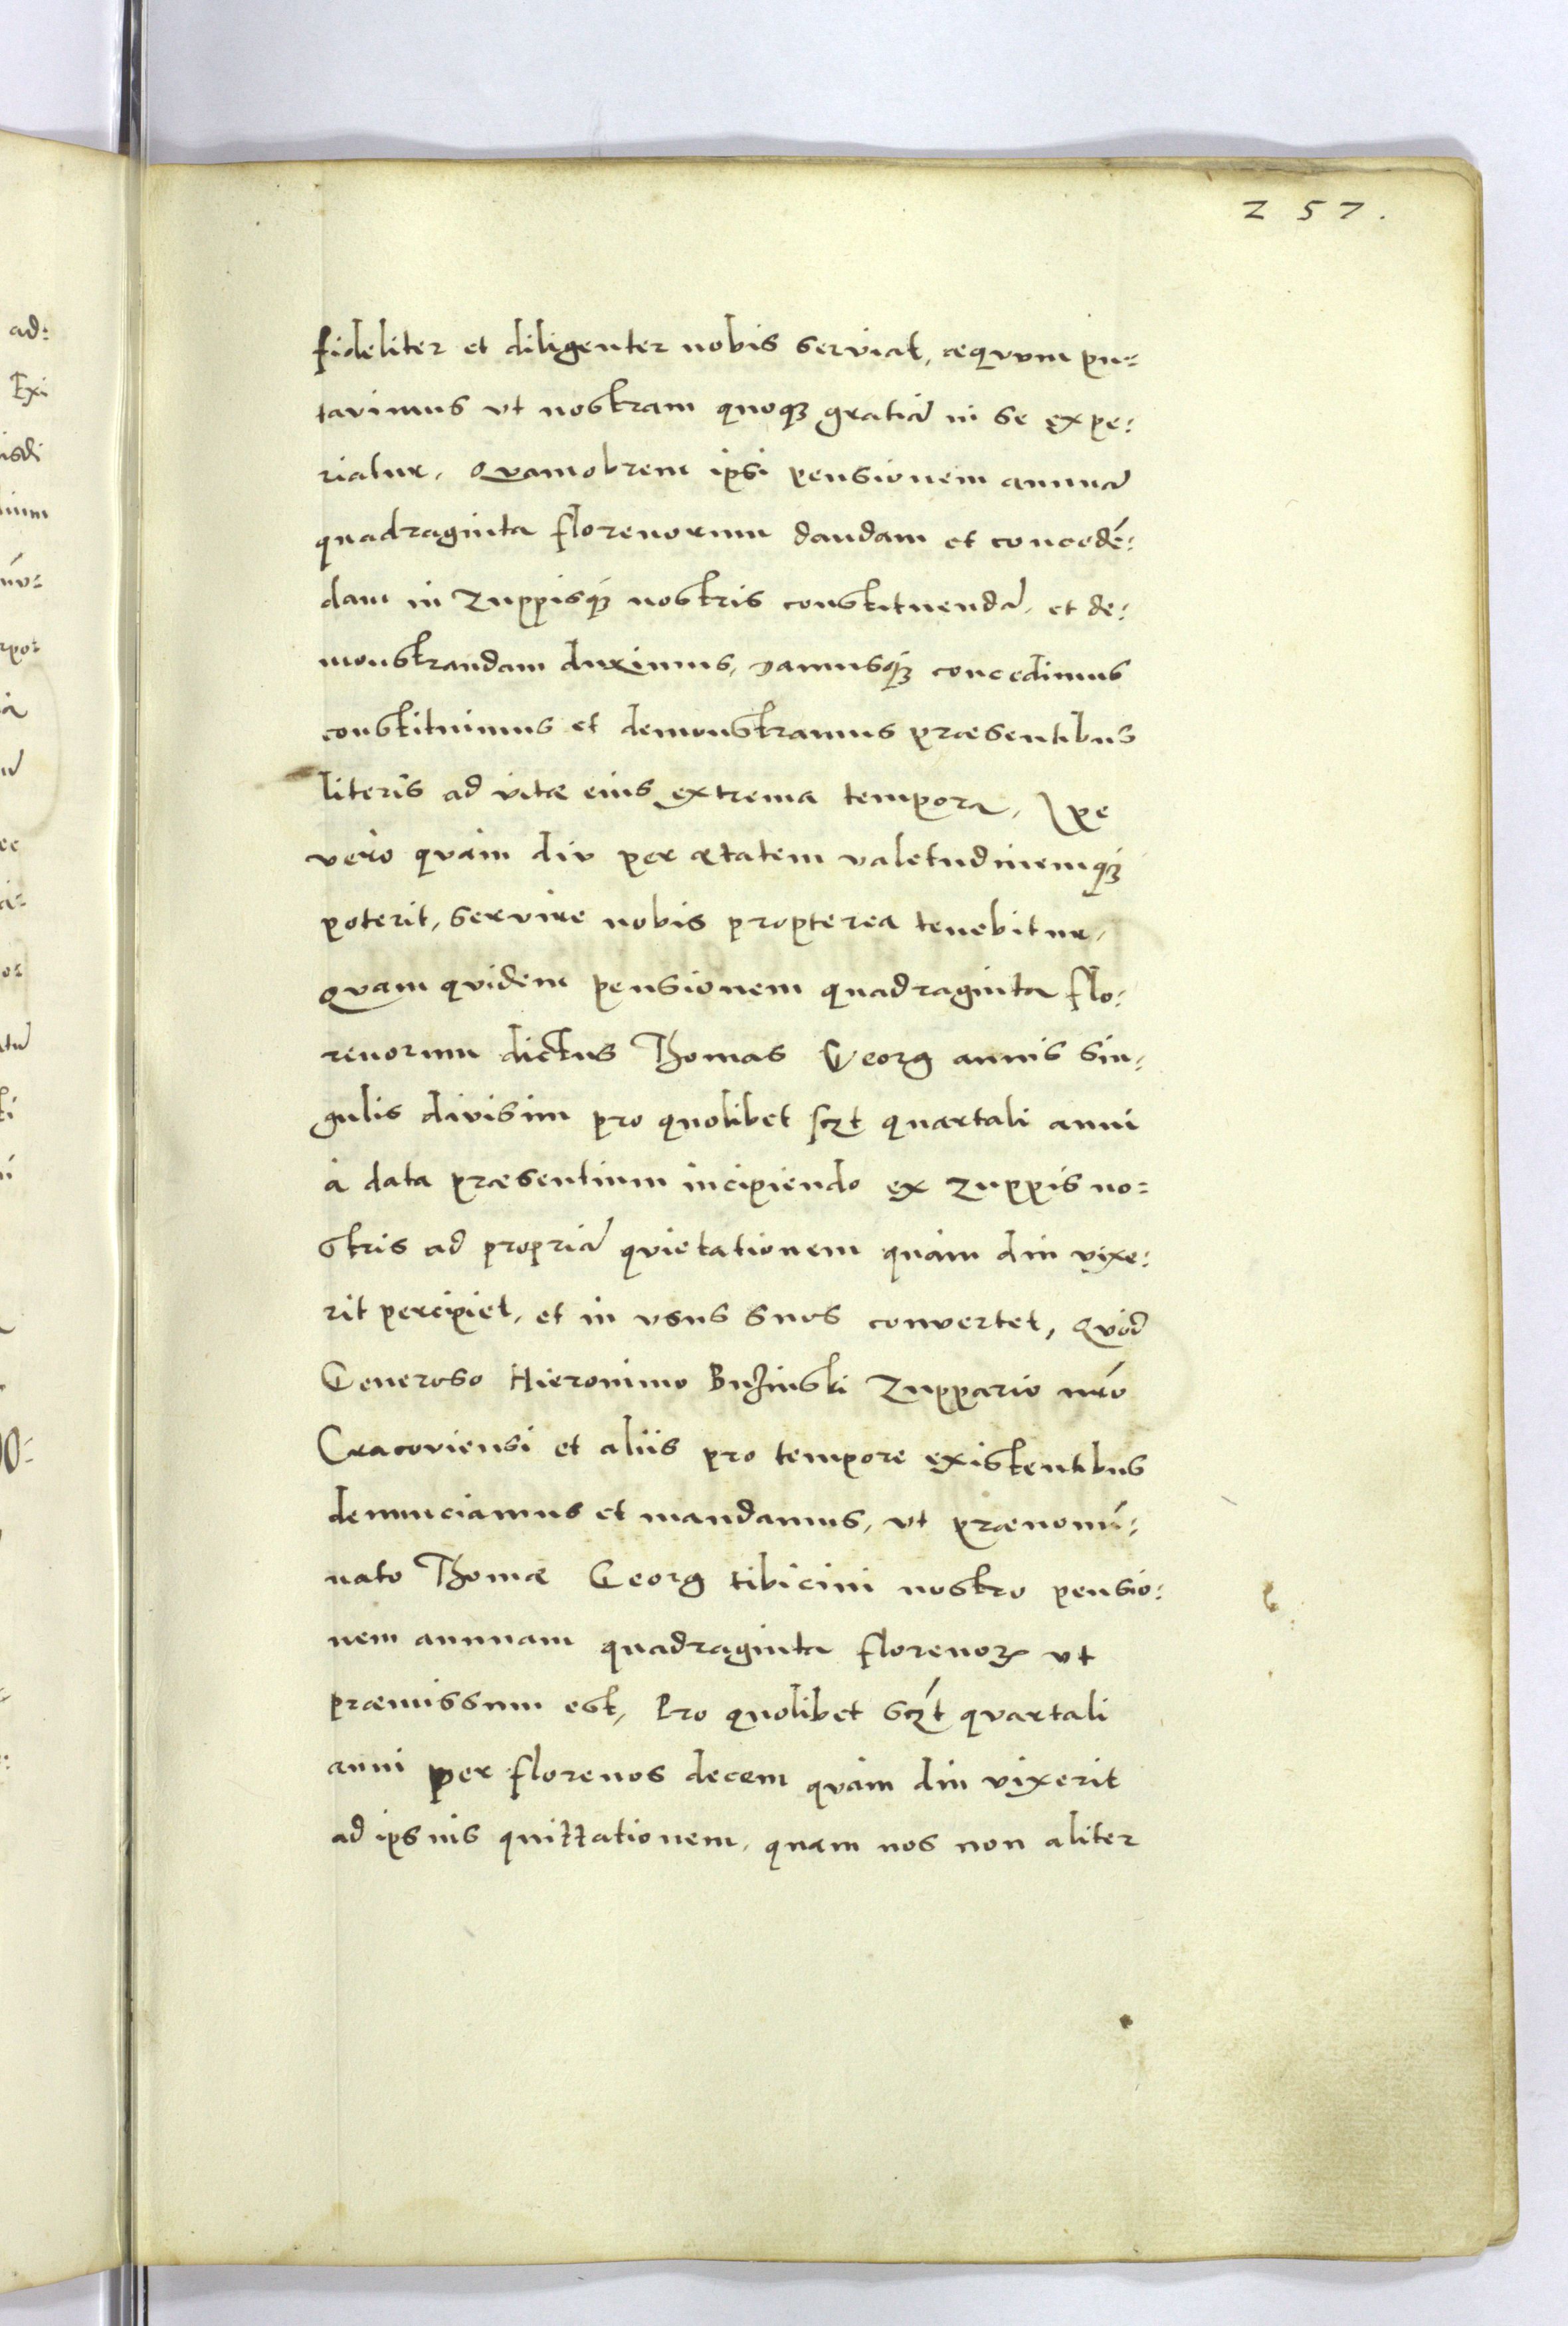 257.
fideliter et diligenter nobis serviat, æquum pu=
tavimus vt nostram quoq3 gratiã in se expe=
riatur. Quamobrem ipsi pensionem annuã
quadraginta florenorum dandam et concedẽ=
dam in Zuppisq3 nostris constituendã, et de=
monstrandam duximus, damusq3 concedimus
constituimus et demonstramus præsentibus
literis ad vitæ eius extrema tempora, Ipse
vero quàm diu per ætatem valetudinemq3
poterit, servire nobis propterea tenebitur,
Quam quidem pensionem quadraginta flo=
renorum dictus Thomas Georg annis sin=
gulis divisim pro quolibet scꝫt quartali anni
à data præsentium incipiendo ex zuppis no=
stris ad propriã quietationem quàm diu vixe=
rit percipiet, et in vsus suos convertet, Quod
Generoso Hieronimo Bužinski Zuppario nr̃o
Cracoviensi et aliis pro tempore existentibus
denunciamus et mandamus, vt prænomi=
nato Thomæ Georg tibicini nostro pensio=
nem annuam quadraginta florenoꝝ vt
præmissum est, Pro quolibet scꝫt quartali
anni per florenos decem quàm diu vixerit
ad ipsius quittationem, quam nos non aliter
ad:
Exi